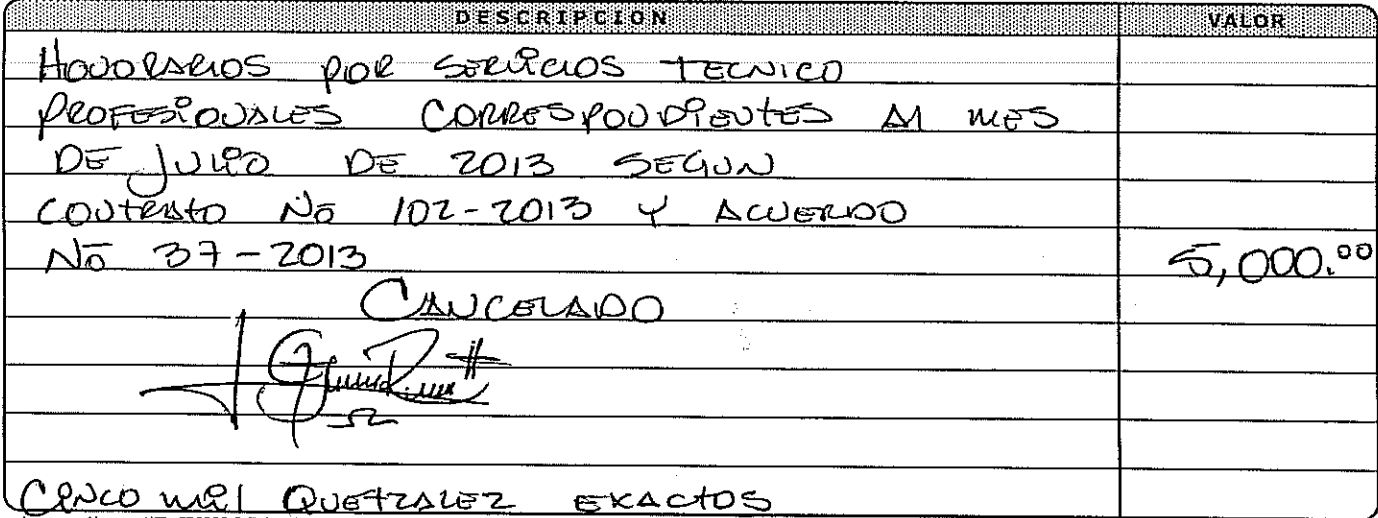 DESCRIPCION VALOR
HONORARIOS POR SERVICIOS TECNICO
PROFESIONALES CORRESPONDIENTES Al MES
DE JULIO DE 2013 SEGUN
CONTRATO No 102-2013 Y ACUERDO
No 37-2013 5,000.00
CANCELADO
CINCO MIL QUETZALEZ EXACTOS